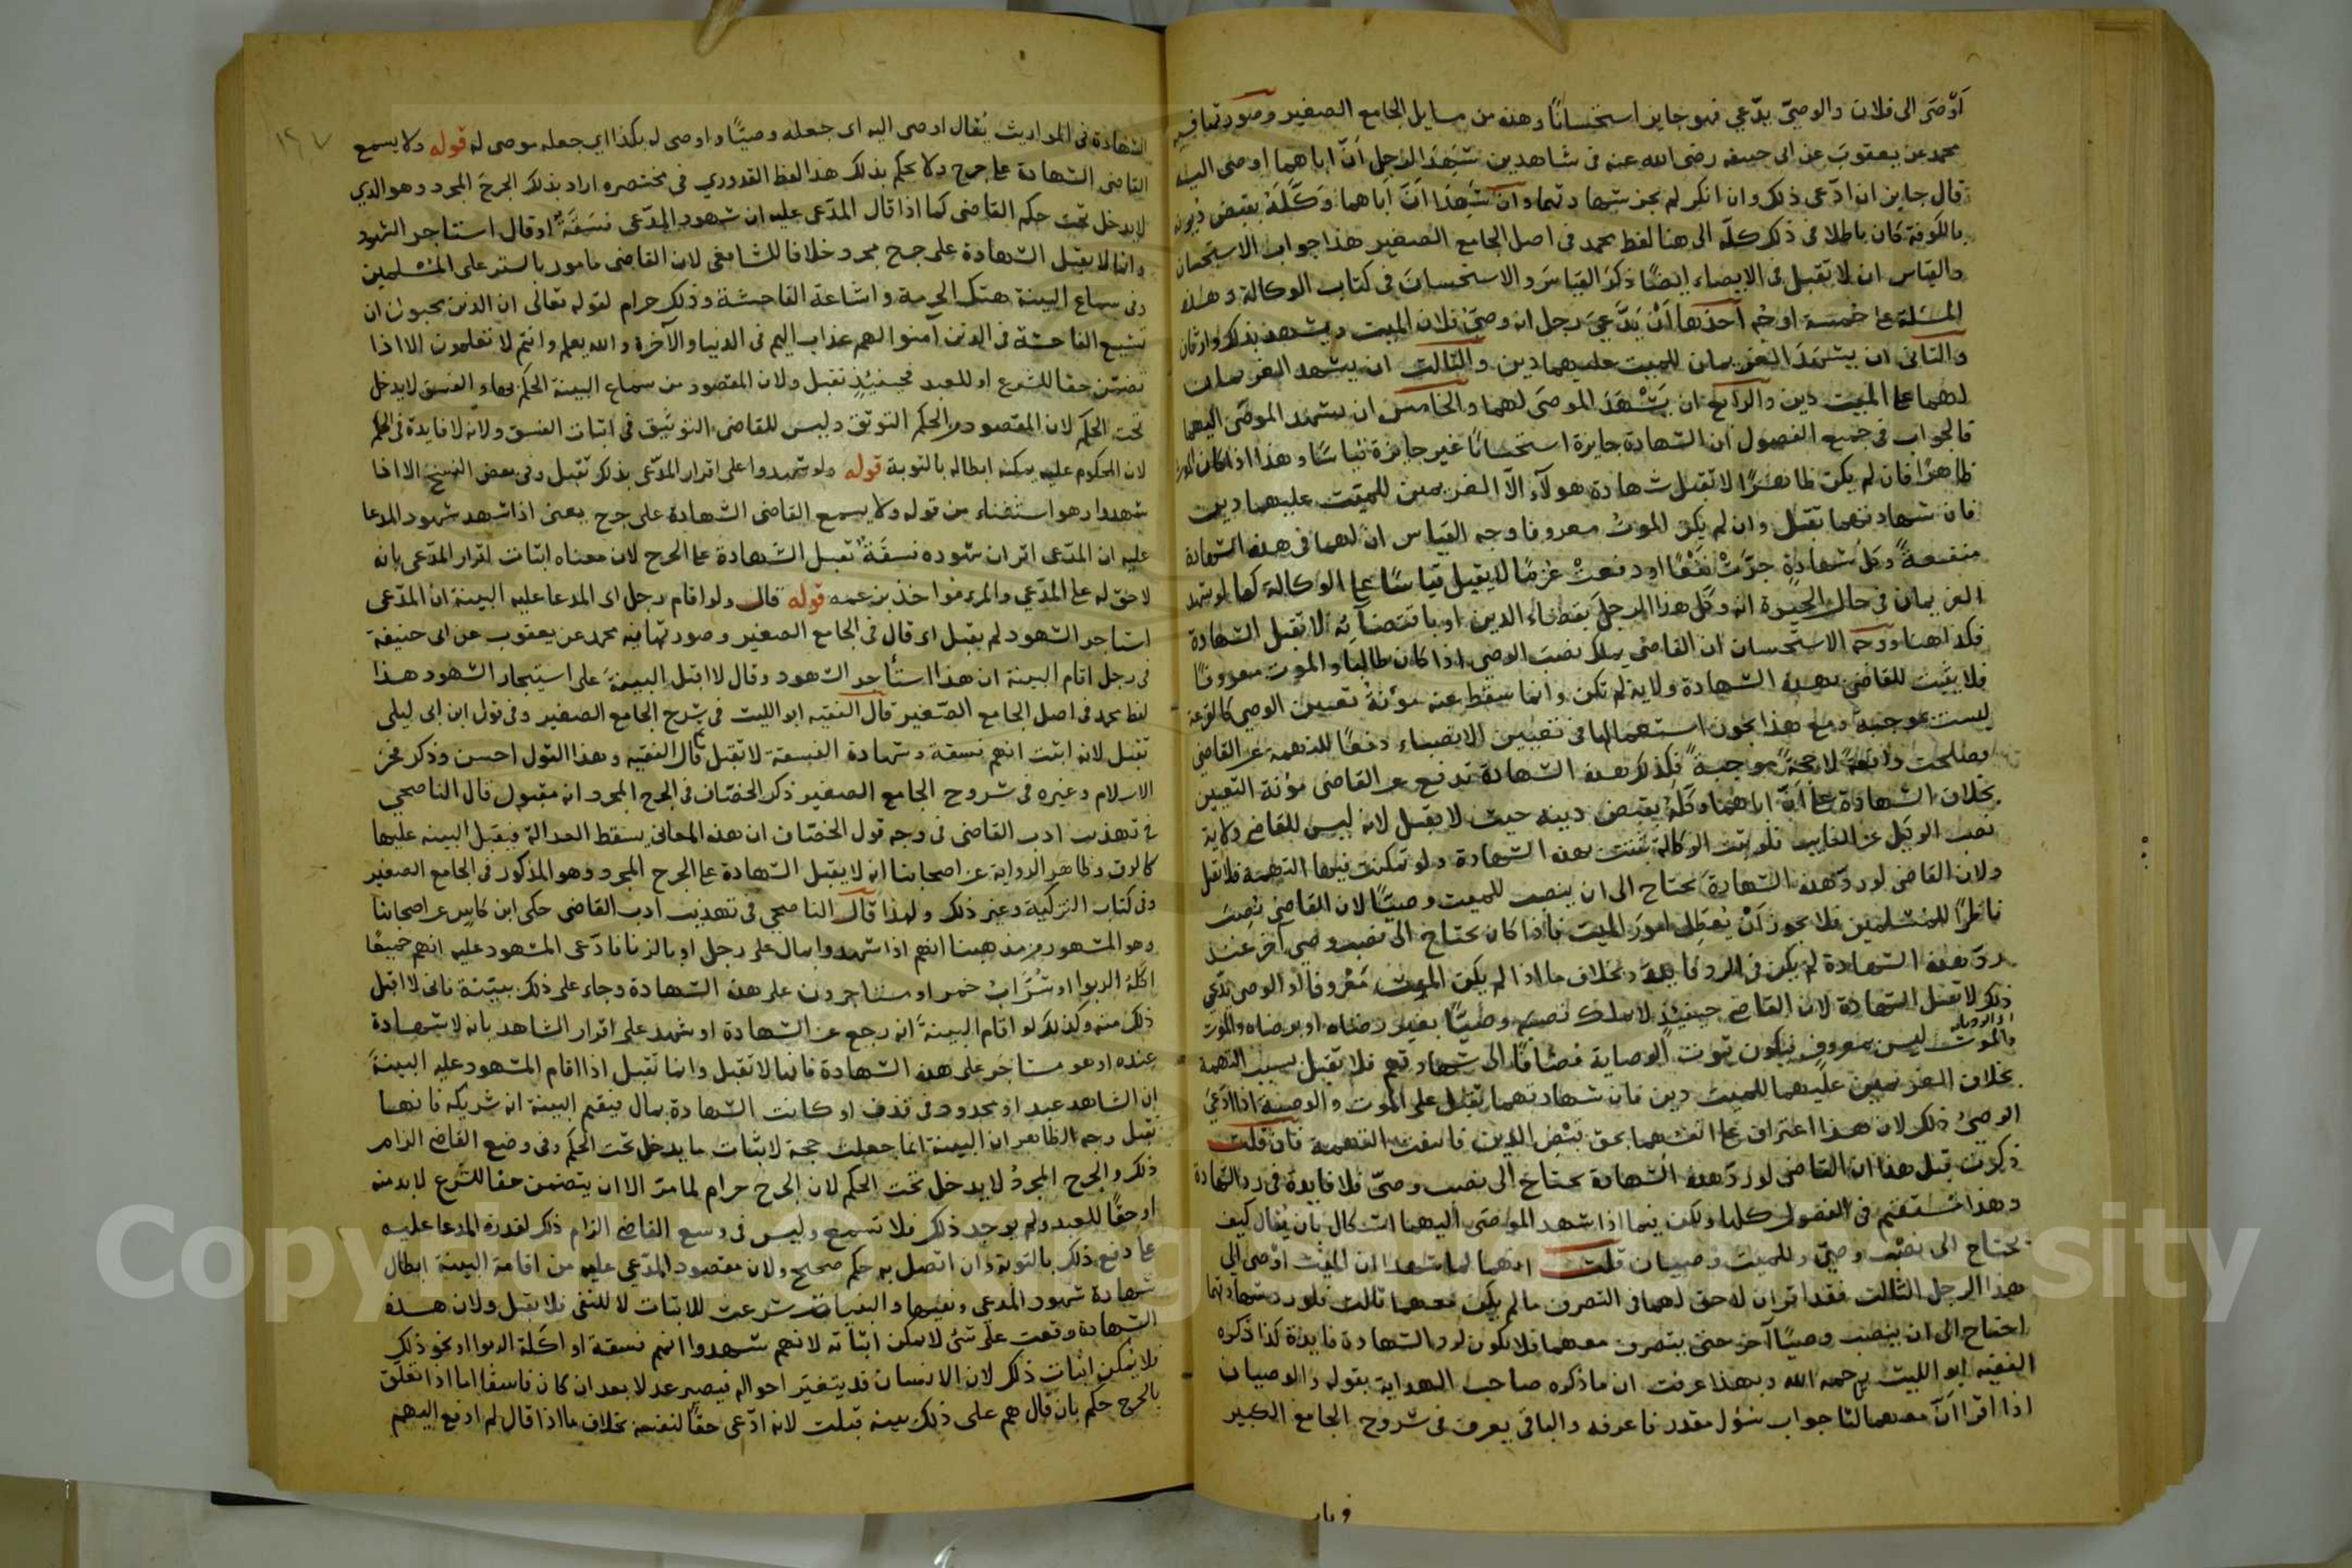 أوصى الى فلان والوصيّ يدّعي فهو جايز استحسانًا وهذه من مسايل الجامع الصغير وصورتها فيه
محمد عن يعقوب عن ابي حنيفه رضى الله عنه في شاهدين شَهِدَا لرجل اَنَّ اباهما اوصى اليه
قال جايز ان ادّعى ذلك وان انكر لم يجز شهادتهما وان شَهِدَا اَنَّ اَباهما وَكَّلَهُ بقبض ديونه
بالكوفة كان باطلا في ذلك كلّه الى هنا لفظ محمد في اصل الجامع الصغير هذا جواب الاستحسان
والقياس ان لا تقبل في الايصاء ايضًا ذكرَ القياسَ والاستحسانَ في كتاب الوكالة وهذه
المسئلة على خمسة اوجُه اَحدُها اَنْ يَدَّعِيَ رجل انه وصيُّ فلان الميت ويشهد بذلك وارثان
والثاني ان يشهَدَ الغريمان للميت عليهما دين والثالث ان يشهد الغريمان
لهما على الميت دين والرابع ان يَشْهَدَ الموصَى لهما والخامس ان يشهد الموصَى اليهما
فالجواب في جميع الفصول ان الشهادة جايزة استحسانًا غير جايزة قياسًا وهذا اذا كان الموت
ظاهرًا فان لم يكن ظاهرًا لا تقبل شهادة هولآء الاّ الغريمين للميّت عليهما دين
فان شهادتهما تقبل وان لم يكن الموتُ معروفا وجه القياس ان لهما في هذه الشهادة
منفعةً وكلّ شهادةٍ جرَّتْ نَفْعًا او دفعتْ غرمًا لا يقبل قياسًا على الوكالة كما لو شهد
الغريمان في حال الحيوة انه وكّل هذا الرجلَ بقضاء الدين او باقتضآئه لا تقبل الشهادة
فكذا هنا ووجه الاستحسان ان القاضي يملك نصبَ الوصي اذا كان طالبا والموت معروفًا
فلا يثبت للقاضي بهذه الشهادة ولاية لم تكن وانما سقط عنه مؤنةُ تعيين الوصي كالقرعة
ليست بموجبةٍ ومع هذا يجوز استعمالها في تعيين الانصباء دفعًا للتهمة عن القاضي
فصلحت دافعةً لا حجةً موجبةً فكذلك هذه الشهادة تدفع عن القاضي مؤنة التعيين
بخلاف الشهادة على اَنَّ اباهما وَكَّلَهُ بقبض دينه حيث لا يقبل لانه ليس للقاضي ولاية
نصب الوكيل عن الغايب فلو ثبت الوكالة تثبت بهذه الشهادة ولو تمكنت فيها التهمة فلا تقبل
ولان القاضي لو ردّ هذه الشهادةَ يحتاج الى ان ينصب للميت وصيًّا لان القاضي نُصِبَ
ناظرًا للمسلمين فلا يجوز اَنْ يُعَطِل امورَ الميت فاذا كان يحتاج الى نصب وصي آخر عند
ردّ هذه الشهادة لم يكن في الرد فايدة وبخلاف ما اذا لم يكن الموت مَعْروفا والوصي يدّعي
ذلك لا تقبل الشهادة لان القاضي حينئذٍ لا يملك نصبَهُ وصيًّا بغير رضاه او برضاه والموت
والموت ليس بمعروف فيكون ثبوت الوصاية مُضافًا الى شهادتهم فلا تقبل بسبب التهمة
بخلاف الغريمين عليهما للميت دين فان شهادتهما تقبل على الموت والوصية اذا ادّعى
الوصيُّ ذلك لان هذا اعتراف على انفسهما بحق قبْضِ الدين فانتفت التهمة فان قلت
ذكرت قبل هذا ان القاضي لو ردّ هذه الشهادة يحتاج الى نصب وصيّ فلا فايدة في رد الشهادة
وهذا مستقيم في الفصول كلها ولكن فيما اذا شهد الموصَى اليهما اشكال بان يُقال كيف
يحتاج الى نصْب وصيّ وللميت وصيان قلت انهما لما شهدا ان الميّت اوْصى الى
هذا الرجل الثالث فقد اقرا ان لا حق لهما في التصرف ما لم يكن معهما ثالث فلو رد شهادتهما
احتاج الى ان ينصب وصيًا آخر حتى يتصرف معهما فلا يكون لرد الشهادة فايدة كذا ذكره
الفقيه ابو الليث رحمه الله وبهذا عرفت ان ما ذكره صاحب الهداية بقوله والوصيان
اذا اقرا اَنّ معهما ثالثا جواب سؤل مقدر فاعرفه والباقي يعرف في شروح الجامع الكبير
١٦٧
الشهادة في المواريث يُقال اوصى اليه اى جعله وصيًّا واوصى له بكذا اي جعله موصى له قوله ولا يسمع
القاضي الشهادة على جرح ولا يحكم بذلك هذا لفظ القدوري في مختصره اراد بذلك الجرحَ المجرد وهو الذي
لا يدخل تحت حكم القاضي كما اذا قال المدّعى عليه ان شهود المدّعى فسَقَةٌ او قال استاجر الشهود
وانما لا يقبل الشهادة على جرح مجرد خلافا للشافعى لان القاضى مامور بالستر على المسْلمين
وفي سماع البينة هتك الحرمة واشاعة الفاحشة وذلك حرام لقوله تعالى ان الذين يحبون ان
تشيع الفاحشة في الذين آمنوا لهم عذاب اليم في الدنيا والآخرة والله يعلم وانتم لا تعلمون الا اذا
تضمّن حقا للشرع او للعبد فحينئذٍ تقبل ولان المقصود من سماع البينة الحكم بها والفسق لا يدخل
تحت الحكم لان المقصود من الحكم التوثّق وليس للقاضى التوثيق في اثبات الفسق ولانّه لا فايدة في الحكم
لان المحكوم عليه يمكنه ابطاله بالتوبة قوله ولو شهدوا على اقرار المدّعى بذلك تقبل وفي بعض النسخ الا اذا
شهدوا وهو استثناء من قوله ولا يسمع القاضى الشهادة على جرح يعنى اذا شهد شهود المدعا
عليه ان المدّعى اقر ان شهوده فسقةٌ تقبل الشهادة على الجرح لان معناه اثبات اقرار المدّعى بانه
لا حق له على المدّعي والمرء مواخذ بزعمه قوله قال ولو اقام رجل اى المدعا عليه البينة ان المدّعى
استاجر الشهود لم يقبل اى قال في الجامع الصغير وصورتها فيه محمد عن يعقوب عن ابى حنيفة
في رجل اقام البينة ان هذا استأجر الشهود وقال لا اقبل البينةَ على استيجار الشهود هذا
لفظ محمد في اصل الجامع الصّغير قال الفقيه ابو الليث في شرح الجامع الصغير وفي قول ابن ابى ليلى
تقبل لانه اثبت انهم فسقة وشهادة الفسقة لا تقبل ثم قال الفقيه وهذا القول احسن وذكر فخر
الاسلام وغيره في شروح الجامع الصغير ذكر الخصّاف في الجرح المجرد انه مقبول قال الناصحي
في تهذيب ادب القاضى في وجه قول الخصّاف ان هذه المعاني يسقط العدالة فيقبل البينه عليها
كالرق وظاهر الرواية عن اصحابنا انه لا يقبل الشهادة على الجرح المجرد وهو المذكور في الجامع الصغير
وفي كتاب التزكية وغير ذلك ولهذا قال الناصحي في تهذيب ادب القاضى حكى ابن كاس عن اصحابنا
وهو المشهور من مذهبنا انهم اذا شهدوا بمال على رجل او بالزنا فادّعى المشهود عليه انهم جميعًا
اكَلة الربوا او شُرَّابُ خمر او مستاجرون على هذه الشهادة وجاء على ذلك ببيّنة فاني لا اقبل
ذلك منه وكذلك لو اقام البينةَ انه رجع عن الشهادة او شهد على اقرار الشاهد بانه لا شهادة
عنده او هو مستاجَر على هذه الشهادة فانها لا تقبل وانما تقبل اذا اقام المشهود عليه البينةَ
ان الشاهد عبد او محدود في قذف او كانت الشهادة بمال فيقيم البينة انه شريكه فانها
تقبل وجه الظاهر ان البينة انما جعلت حجة لاثبات ما يدخل تحت الحكم وفي وضع القاضى الزام
ذلك والجرح المجردُ لا يدخل تحت الحكم لان الجرح حرام لما مرّ الا ان يتضمن حقا للشرع لا بد منه
او حقًا للعبد ولم يوجد ذلك فلا تسمع وليس في وسع القاضى الزام ذلك لقدرة المدعا عليه
على دفع ذلك بالتوبة وان اتصل به حكم صحيح ولان مقصود المدّعى عليه من اقامة البينة ابطال
شهادة شهود المدعى ونفيها والبينات شرعت للاثبات لا للنفى فلا يقبل ولان هذه
الشهادة وقعت على شئ لا يمكن اثباته لانهم شهدوا انهم فسقة او اكَلة الربوا او نحو ذلك
فلا يُمكن اثبات ذلك لان الانسان قد يتغيّر احواله فيصير عدلا بعد ان كان فاسقًا اما اذا تعلّق
بالجرح حكم بان قال هم على ذلك بينه قبلت لانه ادّعى حقًا لنفسه بخلاف ما اذا قال لم ادفع اليهم
Copyright © King Saud University